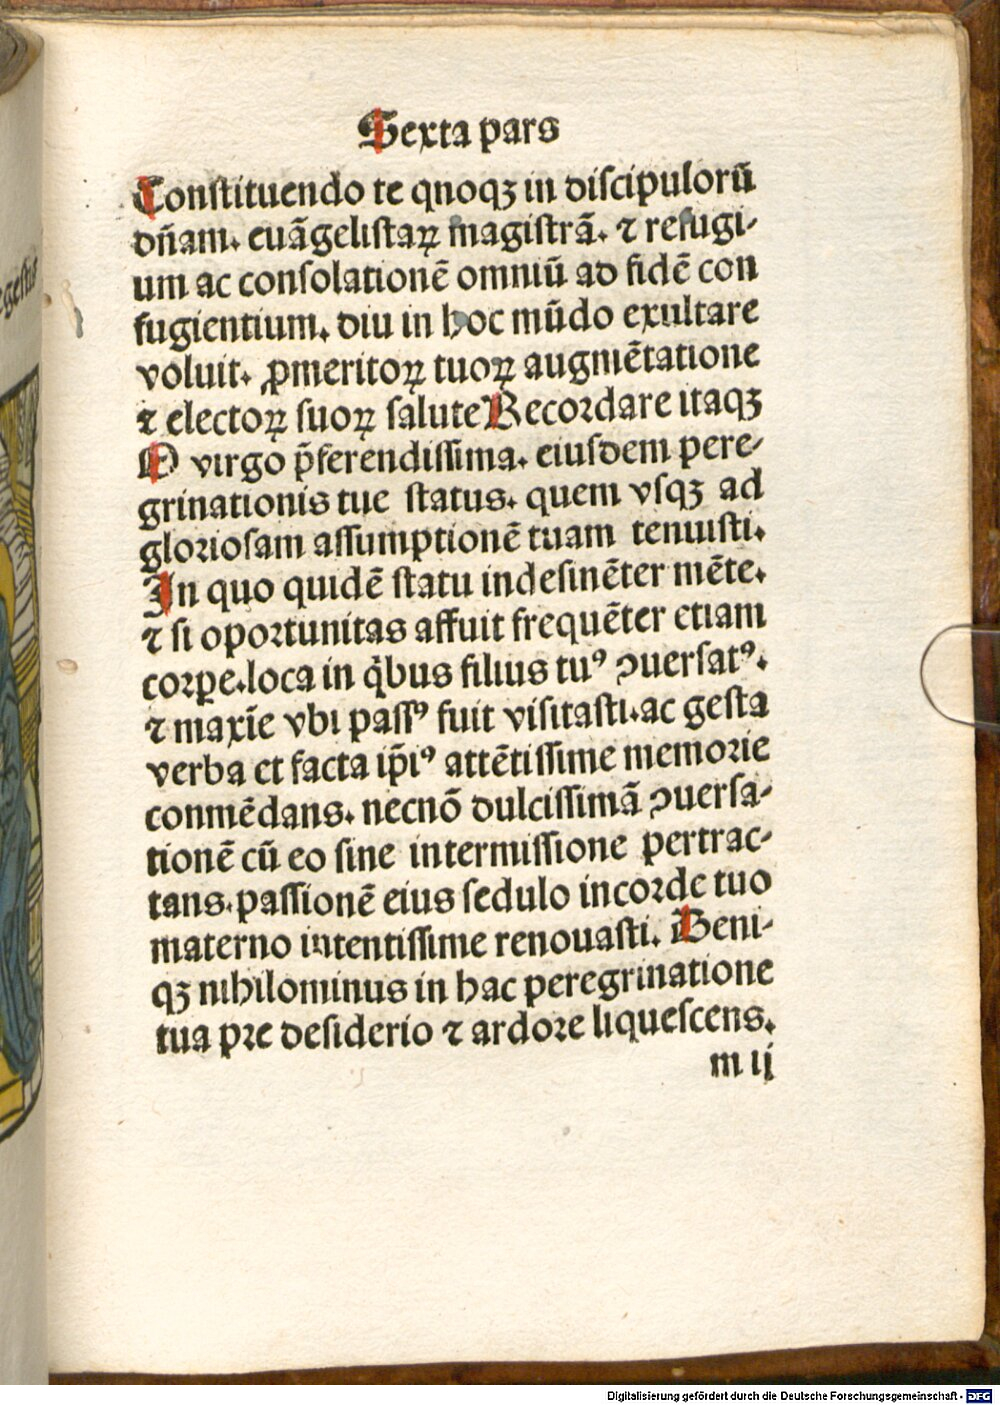 Sexta pars
Constituendo te qnoqꝫ in discipulorū
dn̄am. euāgelistaꝝ magistrā. ⁊ refugi-
um ac consolationē omniū ad fidē con
fugientium. diu in hoc mūdo exultare
voluit. ꝓmeritoꝝ tuoꝝ augmētatione
⁊ electoꝝ suoꝝ salute Recordare itaqꝫ
O virgo p̄ferendissima. eiusdem pere-
grinationis tue status. quem vsqꝫ ad
gloriosam assumptionē tuam tenuisti.
In quo quidē statu indesinēter mēte.
⁊ si oportunitas affuit frequēter etiam
corꝑe. loca in q̇bus filius tuꝰ ꝯuersatꝰ.
⁊ maxīe vbi passꝰ fuit visitasti. ac gesta
verba et facta ip̄iꝰ attētissime memorie
conmēdans. necnō dulcissimā ꝯuersa-
tionē cū eo sine intermissione pertrac-
tans. passionē eius sedulo incorde tuo
materno intentissime renouasti. Deni-
qꝫ nihilominus in hac peregrinatione
tua pre desiderio ⁊ ardore liquescens.
m ij
Digitalisierung gefördert durch die Deutsche Forschungsgemeinschaft - DFG